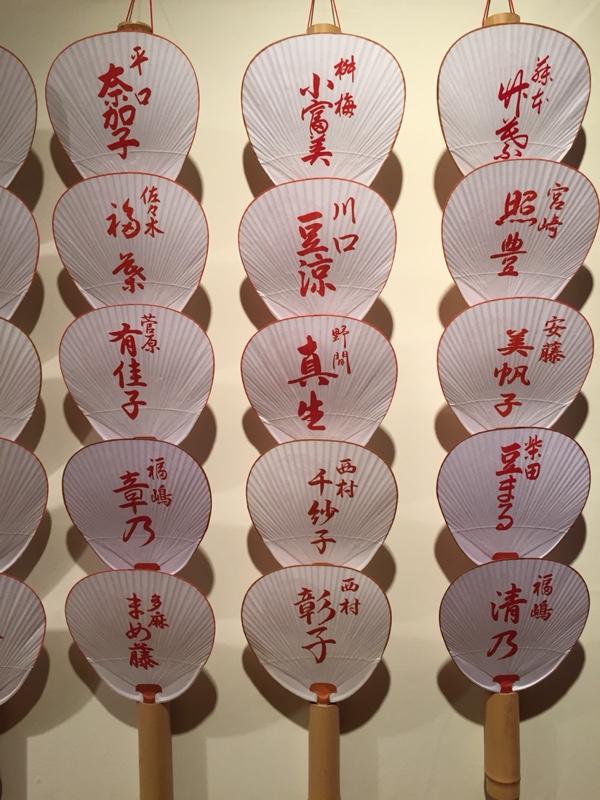 藤本
宮崎
照豊
安藤
美帆子
柴田
豆まる
福嶋
清乃
桝梅
小富美
川口
豆涼
野間
真生
西村
千紗子
西村
彰子
平口
奈加子
佐々木
菅原
有佳子
福嶋
章乃
多麻
まめ藤